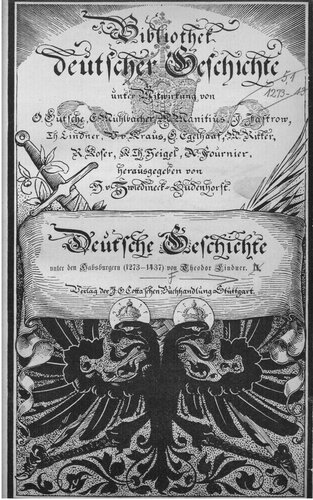 Bibliothek
deutscher Geschichte
unter Mitwirkung von
O. Gutsche, E. Mühlbacher, M. Manitius, J. Jastrow,
Th. Lindner, V. v. Kraus, G. Egelhaaf, M. Ritter,
R. Koser, K. Th. Heigel, A. Fournier,
herausgegeben von
H. v. Zwiedineck-Südenhorst.
Deutsche Geschichte
unter den Habsburgern (1273–1437) von Theodor Lindner.
Verlag der J. G. Cotta'schen Buchhandlung Stuttgart.